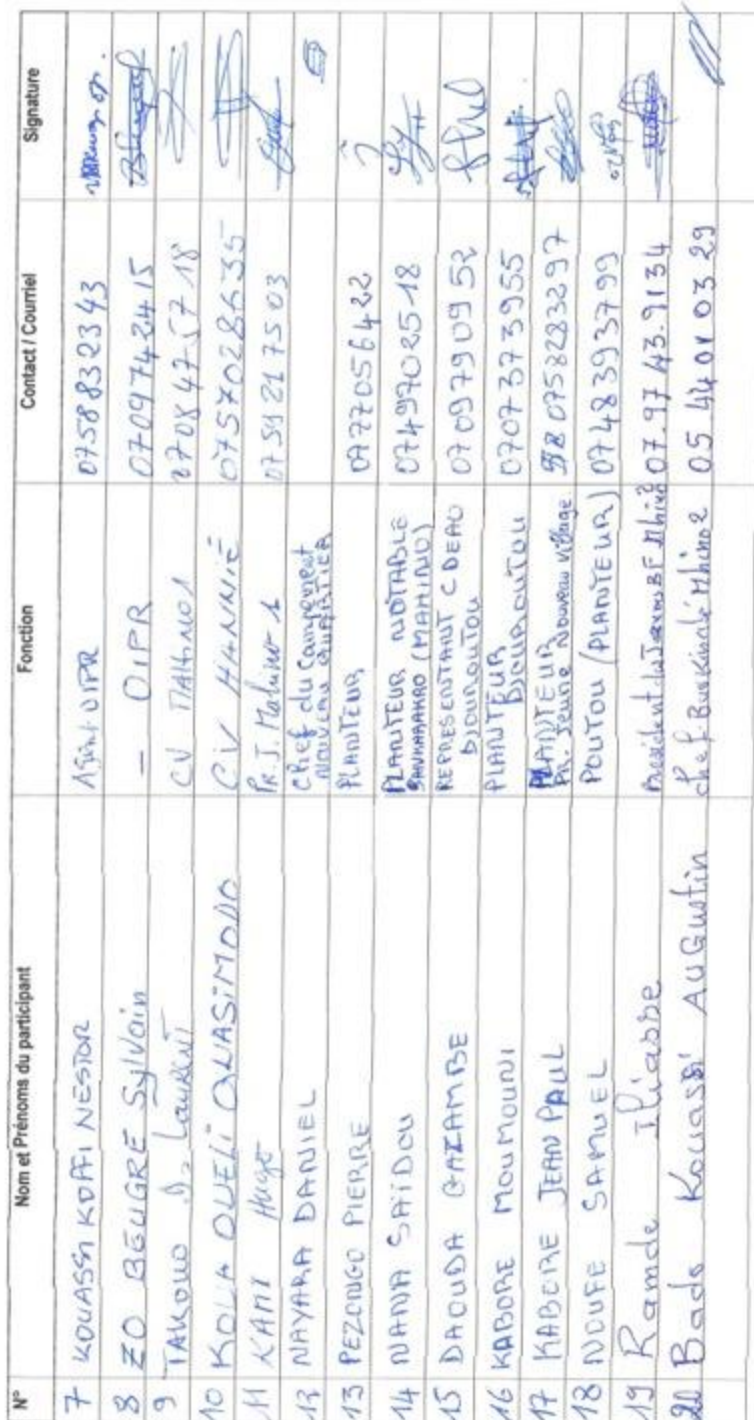 N° Nom et Prénoms du participant Fonction Contact / Courriel Signature
7 KOUASSI KOFFI NESTOR Agent OIPR 0758832343
8 ZO BEUGRE Sylvain — OIPR 0709742415
9 TAKOUO D. Laurent CV MAHINO1 0708475718
10 KOUA OUELI QUASIMODO CV HANNIÉ 0757028635
11 KAMI Hugo Pr. J. Mahino 1 0759217503
12 NAYARA DANIEL Chef du Campement
NOUVEAU QUARTIER
13 PEZONGO PIERRE PLANTEUR 0777056422
14 NANA SAÏDOU PLANTEUR NOTABLE 0749702518
SANKARAKRO (MAHINO)
15 DAOUDA REPRESENTANT CDEAO 0709790952
DJOUROUTOU
16 KABORE MOUMOUNI PLANTEUR 0707373955
DJOUROUTOU
17 KABORE JEAN PAUL PLANTEUR 0758283297
Pr. Jeune Nouveau village
18 NOUFE SAMUEL POUTOU (PLANTEUR) 0748393799
19 Ramde Iliasse président BF Mhino 2 07.97 43.9134
20 Bado Kouassi AUGustin chef Burkinabé Mhino 2 05 44 01 03 29